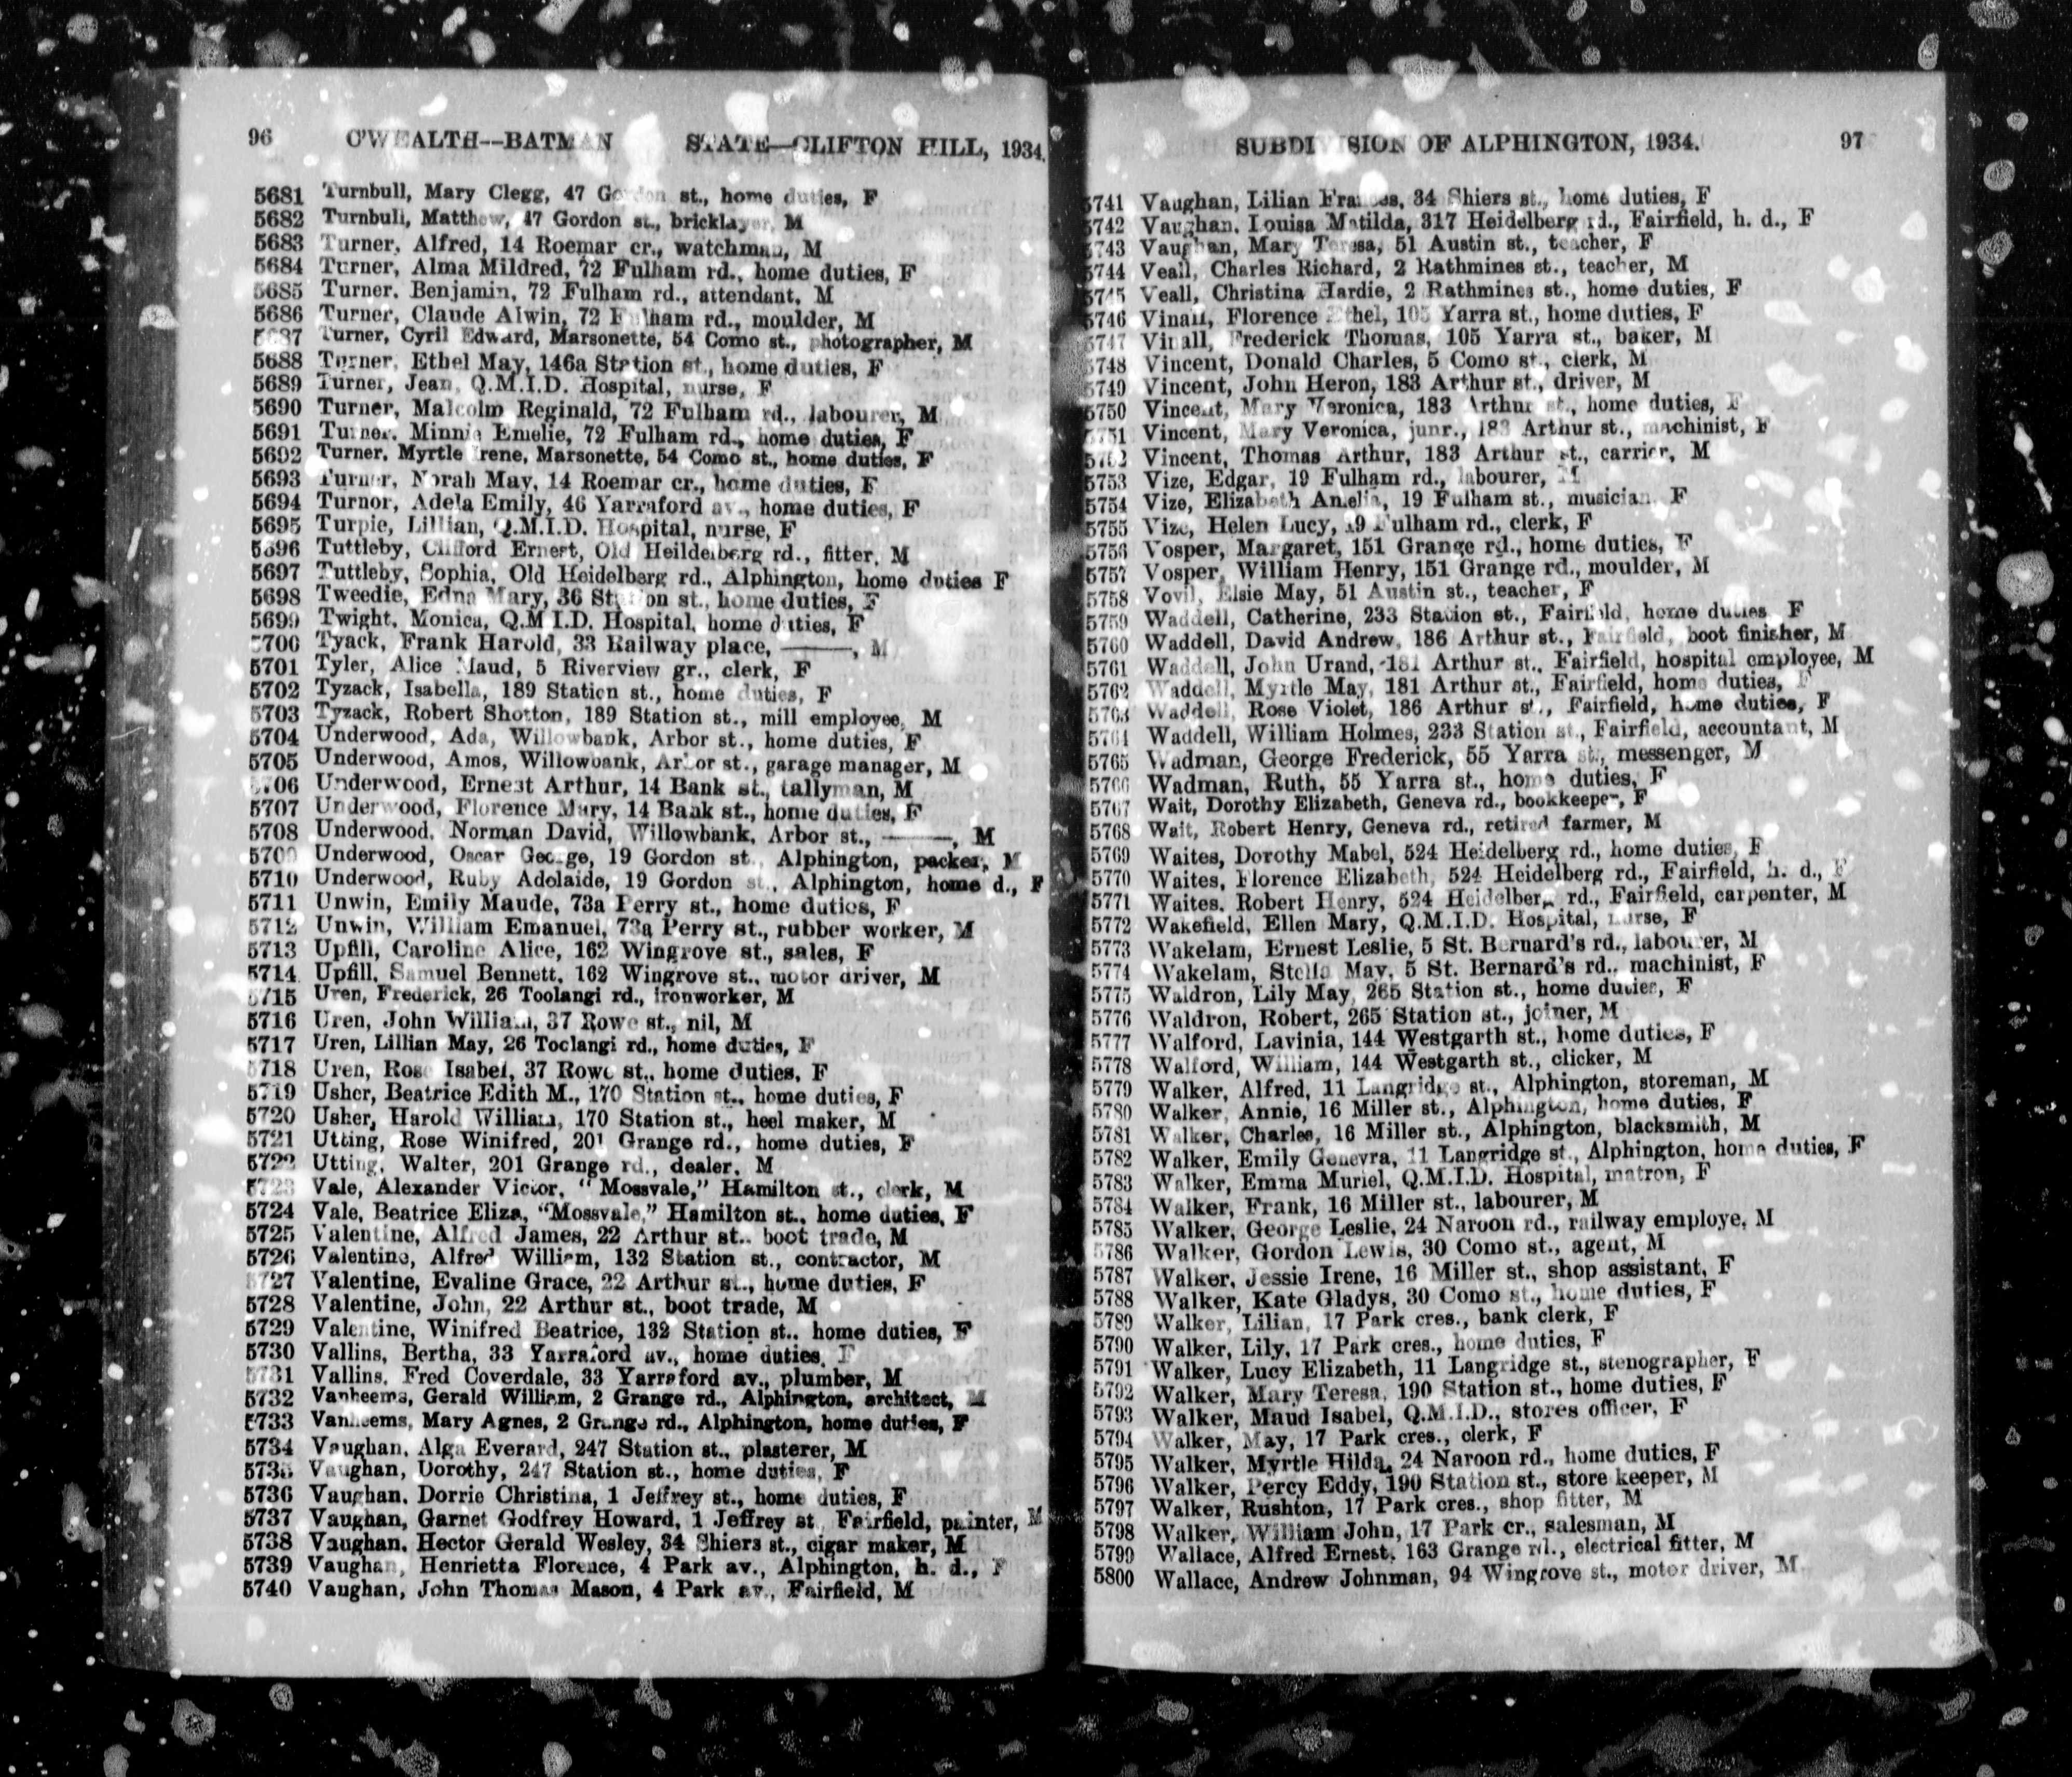 96 C'WEALTH--BATMAN STATE—CLIFTON HILL, 1934.
5681 Turnbull, Mary Clegg, 47 Gordon st., home duties, F
5682 Turnbull, Matthew, 47 Gordon st., bricklayer, M
5683 Turner, Alfred, 14 Roemar cr., watchman, M
5684 Turner, Alma Mildred, 72 Fulham rd., home duties, F
5685 Turner, Benjamin, 72 Fulham rd., attendant, M
5686 Turner, Claude Alwin, 72 Fulham rd., moulder, M
5687 Turner, Cyril Edward, Marsonette, 54 Como st., photographer, M
5688 Turner, Ethel May, 146a Station st., home duties, F
5689 Turner, Jean, Q.M.I.D. Hospital, nurse, F
5690 Turner, Malcolm Reginald, 72 Fulham rd., labourer, M
5691 Turner, Minnie Emelie, 72 Fulham rd., home duties, F
5692 Turner, Myrtle Irene, Marsonette, 54 Como st., home duties, F
5693 Turner, Norah May, 14 Roemar cr., home duties, F
5694 Turnor, Adela Emily, 46 Yarraford av., home duties, F
5695 Turpie, Lillian, Q.M.I.D. Hospital, nurse, F
5696 Tuttleby, Clifford Ernert, Old Heildelberg rd., fitter, M
5697 Tuttleby, Sophia, Old Heidelberg rd., Alphington, home duties F
5698 Tweedie, Edna Mary, 36 Station st., home duties, F
5699 Twight, Monica, Q.M I.D. Hospital, home duties, F
5700 Tyack, Frank Harold, 33 Railway place, ———, M
5701 Tyler, Alice Maud, 5 Riverview gr., clerk, F
5702 Tyzack, Isabella, 189 Station st., home duties, F
5703 Tyzack, Robert Shotton, 189 Station st., mill employee, M
5704 Underwood, Ada, Willowbank, Arbor st., home duties, F
5705 Underwood, Amos, Willowbank, Arbor st., garage manager, M
5706 Underwood, Ernest Arthur, 14 Bank st., tallyman, M
5707 Underwood, Florence Mary, 14 Bank st., home duties, F
5708 Underwood, Norman David, Willowbank, Arbor st., ———, M
5709 Underwood, Oscar George, 19 Gordon st., Alphington, packer, M
5710 Underwood, Ruby Adelaide, 19 Gordon st., Alphington, home d., F
5711 Unwin, Emily Maude, 73a Perry st., home duties, F
5712 Unwin, William Emanuel, 73a Perry st., rubber worker, M
5713 Upfill, Caroline Alice, 162 Wingrove st., sales, F
5714 Upfill, Samuel Bennett, 162 Wingrove st., motor driver, M
5715 Uren, Frederick, 26 Toolangi rd., ironworker, M
5716 Uren, John William, 37 Rowe st., nil, M
5717 Uren, Lillian May, 26 Toolangi rd., home duties, F
5718 Uren, Rose Isabel, 37 Rowe st., home duties, F
5719 Usher, Beatrice Edith M., 170 Station st., home duties, F
5720 Usher, Harold William, 170 Station st., heel maker, M
5721 Utting, Rose Winifred, 201 Grange rd., home duties, F
5722 Utting, Walter, 201 Grange rd., dealer, M
5723 Vale, Alexander Victor, "Mossvale," Hamilton st., clerk, M
5724 Vale, Beatrice Eliza, "Mossvale," Hamilton st., home duties, F
5725 Valentine, Alfred James, 22 Arthur st., boot trade, M
5726 Valentine, Alfred William, 132 Station st., contractor, M
5727 Valentine, Evaline Grace, 22 Arthur st., home duties, F
5728 Valentine, John, 22 Arthur st., boot trade, M
5729 Valentine, Winifred Beatrice, 132 Station st., home duties, F
5730 Vallins, Bertha, 33 Yarraford av., home duties, F
5731 Vallins, Fred Coverdale, 33 Yarraford av., plumber, M
5732 Vanheems, Gerald William, 2 Grange rd., Alphington, architect, M
5733 Vanheems, Mary Agnes, 2 Grange rd., Alphington, home duties, F
5734 Vaughan, Alga Everard, 247 Station st., plasterer, M
5735 Vaughan, Dorothy, 247 Station st., home duties, F
5736 Vaughan, Dorrie Christina, 1 Jeffrey st., home duties, F
5737 Vaughan, Garnet Godfrey Howard, 1 Jeffrey st., Fairfield, painter, M
5738 Vaughan, Hector Gerald Wesley, 34 Shiers st., cigar maker, M
5739 Vaughan, Henrietta Florence, 4 Park av., Alphington, h. d., F
5740 Vaughan, John Thomas Mason, 4 Park av., Fairfield, M
SUBDIVISION OF ALPHINGTON, 1934. 97
5741 Vaughan, Lilian Frances, 34 Shiers st., home duties, F
5742 Vaughan, Louisa Matilda, 317 Heidelberg rd., Fairfield, h. d., F
5743 Vaughan, Mary Teresa, 51 Austin st., teacher, F
5744 Veall, Charles Richard, 2 Rathmines st., teacher, M
5745 Veall, Christina Hardie, 2 Rathmines st., home duties, F
5746 Vinall, Florence Ethel, 105 Yarra st., home duties, F
5747 Vinall, Frederick Thomas, 105 Yarra st., baker, M
5748 Vincent, Donald Charles, 5 Como st., clerk, M
5749 Vincent, John Heron, 183 Arthur st., driver, M
5750 Vincent, Mary Veronica, 183 Arthur st., home duties, F
5751 Vincent, Mary Veronica, junr., 183 Arthur st., machinist, F
5752 Vincent, Thomas Arthur, 183 Arthur st., carrier, M
5753 Vize, Edgar, 19 Fulham rd., labourer, M
5754 Vize, Elizabeth Amelia, 19 Fulham st., musician, F
5755 Vize, Helen Lucy, 19 Fulham rd., clerk, F
5756 Vosper, Margaret, 151 Grange rd., home duties, F
5757 Vosper, William Henry, 151 Grange rd., moulder, M
5758 Vovil, Elsie May, 51 Austin st., teacher, F
5759 Waddell, Catherine, 233 Station st., Fairfield, home duties F
5760 Waddell, David Andrew, 186 Arthur st., Fairfield, boot finisher, M
5761 Waddell, John Urand, 181 Arthur st., Fairfield, hospital employee, M
5762 Waddell, Myrtle May, 181 Arthur st., Fairfield, home duties, F
5763 Waddell, Rose Violet, 186 Arthur st., Fairfield, home duties, F
5764 Waddell, William Holmes, 233 Station st., Fairfield, accountant, M
5765 Wadman, George Frederick, 55 Yarra st., messenger, M
5766 Wadman, Ruth, 55 Yarra st., home duties, F
5767 Wait, Dorothy Elizabeth, Geneva rd., bookkeeper, F
5768 Wait, Robert Henry, Geneva rd., retired farmer, M
5769 Waites, Dorothy Mabel, 524 Heidelberg rd., home duties, F
5770 Waites, Florence Elizabeth, 524 Heidelberg rd., Fairfield, h. d., F
5771 Waites, Robert Henry, 524 Heidelberg rd., Fairfield, carpenter, M
5772 Wakefield, Ellen Mary, Q.M.I.D. Hospital, nurse, F
5773 Wakelam, Ernest Leslie, 5 St. Bernard's rd., labourer, M
5774 Wakelam, Stella May, 5 St. Bernard's rd., machinist, F
5775 Waldron, Lily May, 265 Station st., home duties, F
5776 Waldron, Robert, 265 Station st., joiner, M
5777 Walford, Lavinia, 144 Westgarth st., home duties, F
5778 Walford, William, 144 Westgarth st., clicker, M
5779 Walker, Alfred, 11 Langridge st., Alphington, storeman, M
5780 Walker, Annie, 16 Miller st., Alphington, home duties, F
5781 Walker, Charles, 16 Miller st., Alphington, blacksmith, M
5782 Walker, Emily Genevra, 11 Langridge st., Alphington, home duties, F
5783 Walker, Emma Muriel, Q.M.I.D. Hospital, matron, F
5784 Walker, Frank, 16 Miller st., labourer, M
5785 Walker, George Leslie, 24 Naroon rd., railway employe, M
5786 Walker, Gordon Lewis, 30 Como st., agent, M
5787 Walker, Jessie Irene, 16 Miller st., shop assistant, F
5788 Walker, Kate Gladys, 30 Como st., home duties, F
5789 Walker, Lilian, 17 Park cres., bank clerk, F
5790 Walker, Lily, 17 Park cres., home duties, F
5791 Walker, Lucy Elizabeth, 11 Langridge st., stenographer, F
5792 Walker, Mary Teresa, 190 Station st., home duties, F
5793 Walker, Maud Isabel, Q.M.I.D., stores officer, F
5794 Walker, May, 17 Park cres., clerk, F
5795 Walker, Myrtle Hilda, 24 Naroon rd., home duties, F
5796 Walker, Percy Eddy, 190 Station st., store keeper, M
5797 Walker, Rushton, 17 Park cres., shop fitter, M
5798 Walker, William John, 17 Park cr., salesman, M
5799 Wallace, Alfred Ernest, 163 Grange rd., electrical fitter, M
5800 Wallace, Andrew Johnman, 94 Wingrove st., motor driver, M